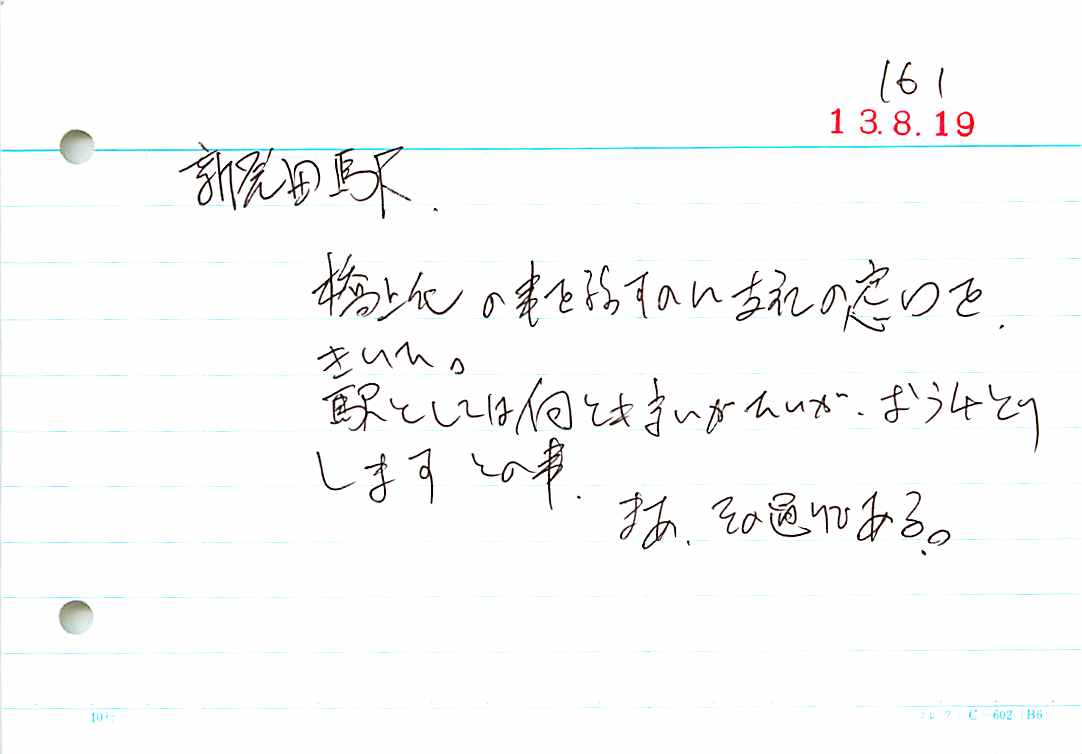 161
13.8.19
新発田駅.
橋上化の事を話すのに支社の窓口を.
きいた。
駅としては何とも言いがたいが、おうけとり
します との事.
まあ、その通りである。
C 602 B6